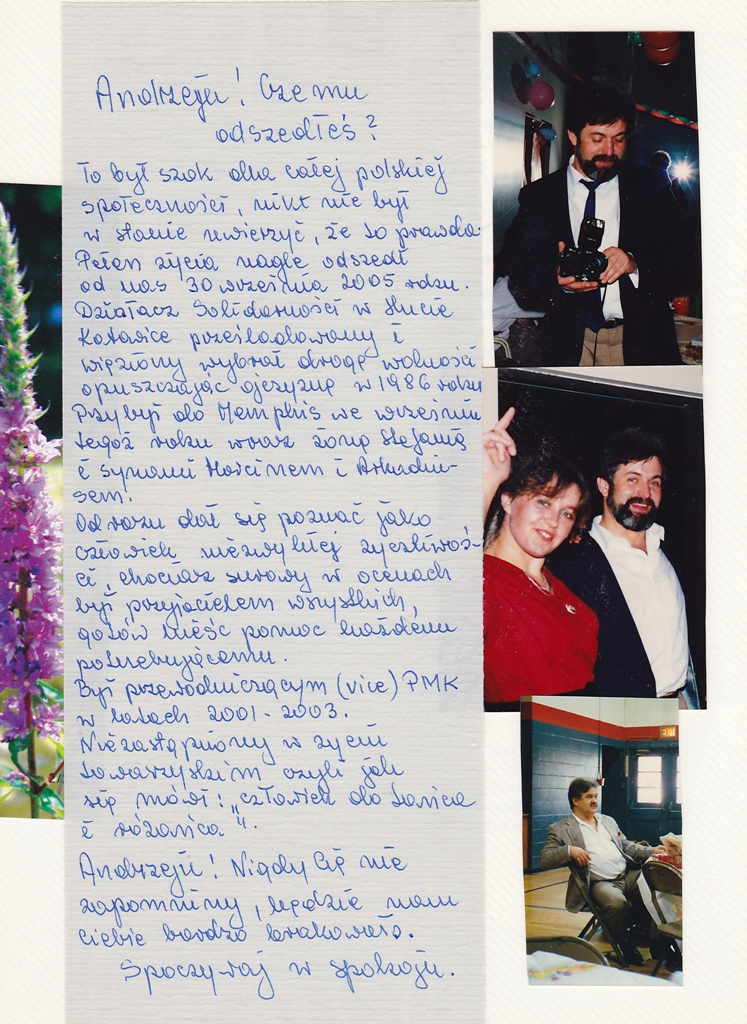 Andrzeju! Czemu
odszedłeś?
To był szok dla całej polskiej
społeczności, nikt nie był
w stanie uwierzyć, że to prawda.
Pełen życia nagle odszedł
od nas 30 września 2005 roku.
Działacz Solidarności w Hucie
Katowice prześladowany i
więziony wybrał drogę wolności
opuszczając ojczyznę w 1986 roku
Przybył do Memphis we wrześniu
tegoż roku wraz żoną Stefanią
i synami Marcinem i Arkadiu-
szem.
Od razu dał się poznać jako
człowiek niezwykłej życzliwoś-
ci, chociaż surowy w ocenach
był przyjacielem wszystkich,
gotów nieść pomoc każdemu
potrzebującemu.
Był przewodniczącym (vice) PMK
w latach 2001-2003.
Niezastąpiony w życiu
towarzyskim czyli jak
się mówi: „człowiek do tańca
i różańca".
Andrzeju! Nigdy Cię nie
zapomnimy, będzie nam
ciebie bardzo brakowało.
Spoczywaj w spokoju.
EXIT